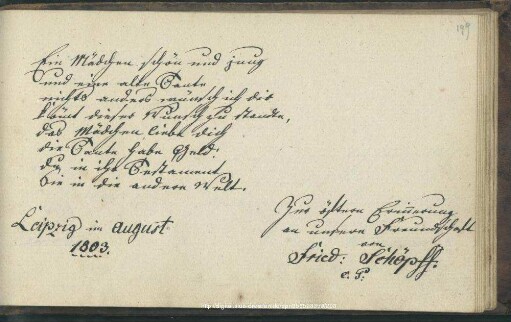 149
Ein Mädchen schön und jung
und eine alte Tante
nichts anders wünsch ich dir
kömt dieser Wunsch zu stande,
das Mädchen liebe dich
die Tante habe Geld.
du in ihr Testament
Sie in die andere Welt.
Leipzig im august
1803.
Zur öftern Erinnerung
an unsere Freundschaft
von
Fried: Schöpff.